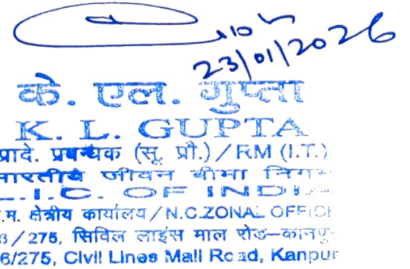 23/01/2026
के. एल. गुप्ता
K. L. GUPTA
प्रादे. प्रबन्धक (सू. प्रौ.) / RM (I.T.)
भारतीय जीवन बीमा निगम
L.I.C. OF INDIA
म. क्षेत्रीय कार्यालय / N.C.ZONAL OFFIC
/ 275, सिविल लाइंस माल रोड-कानपु
6/275, Civil Lines Mall Road, Kanpur